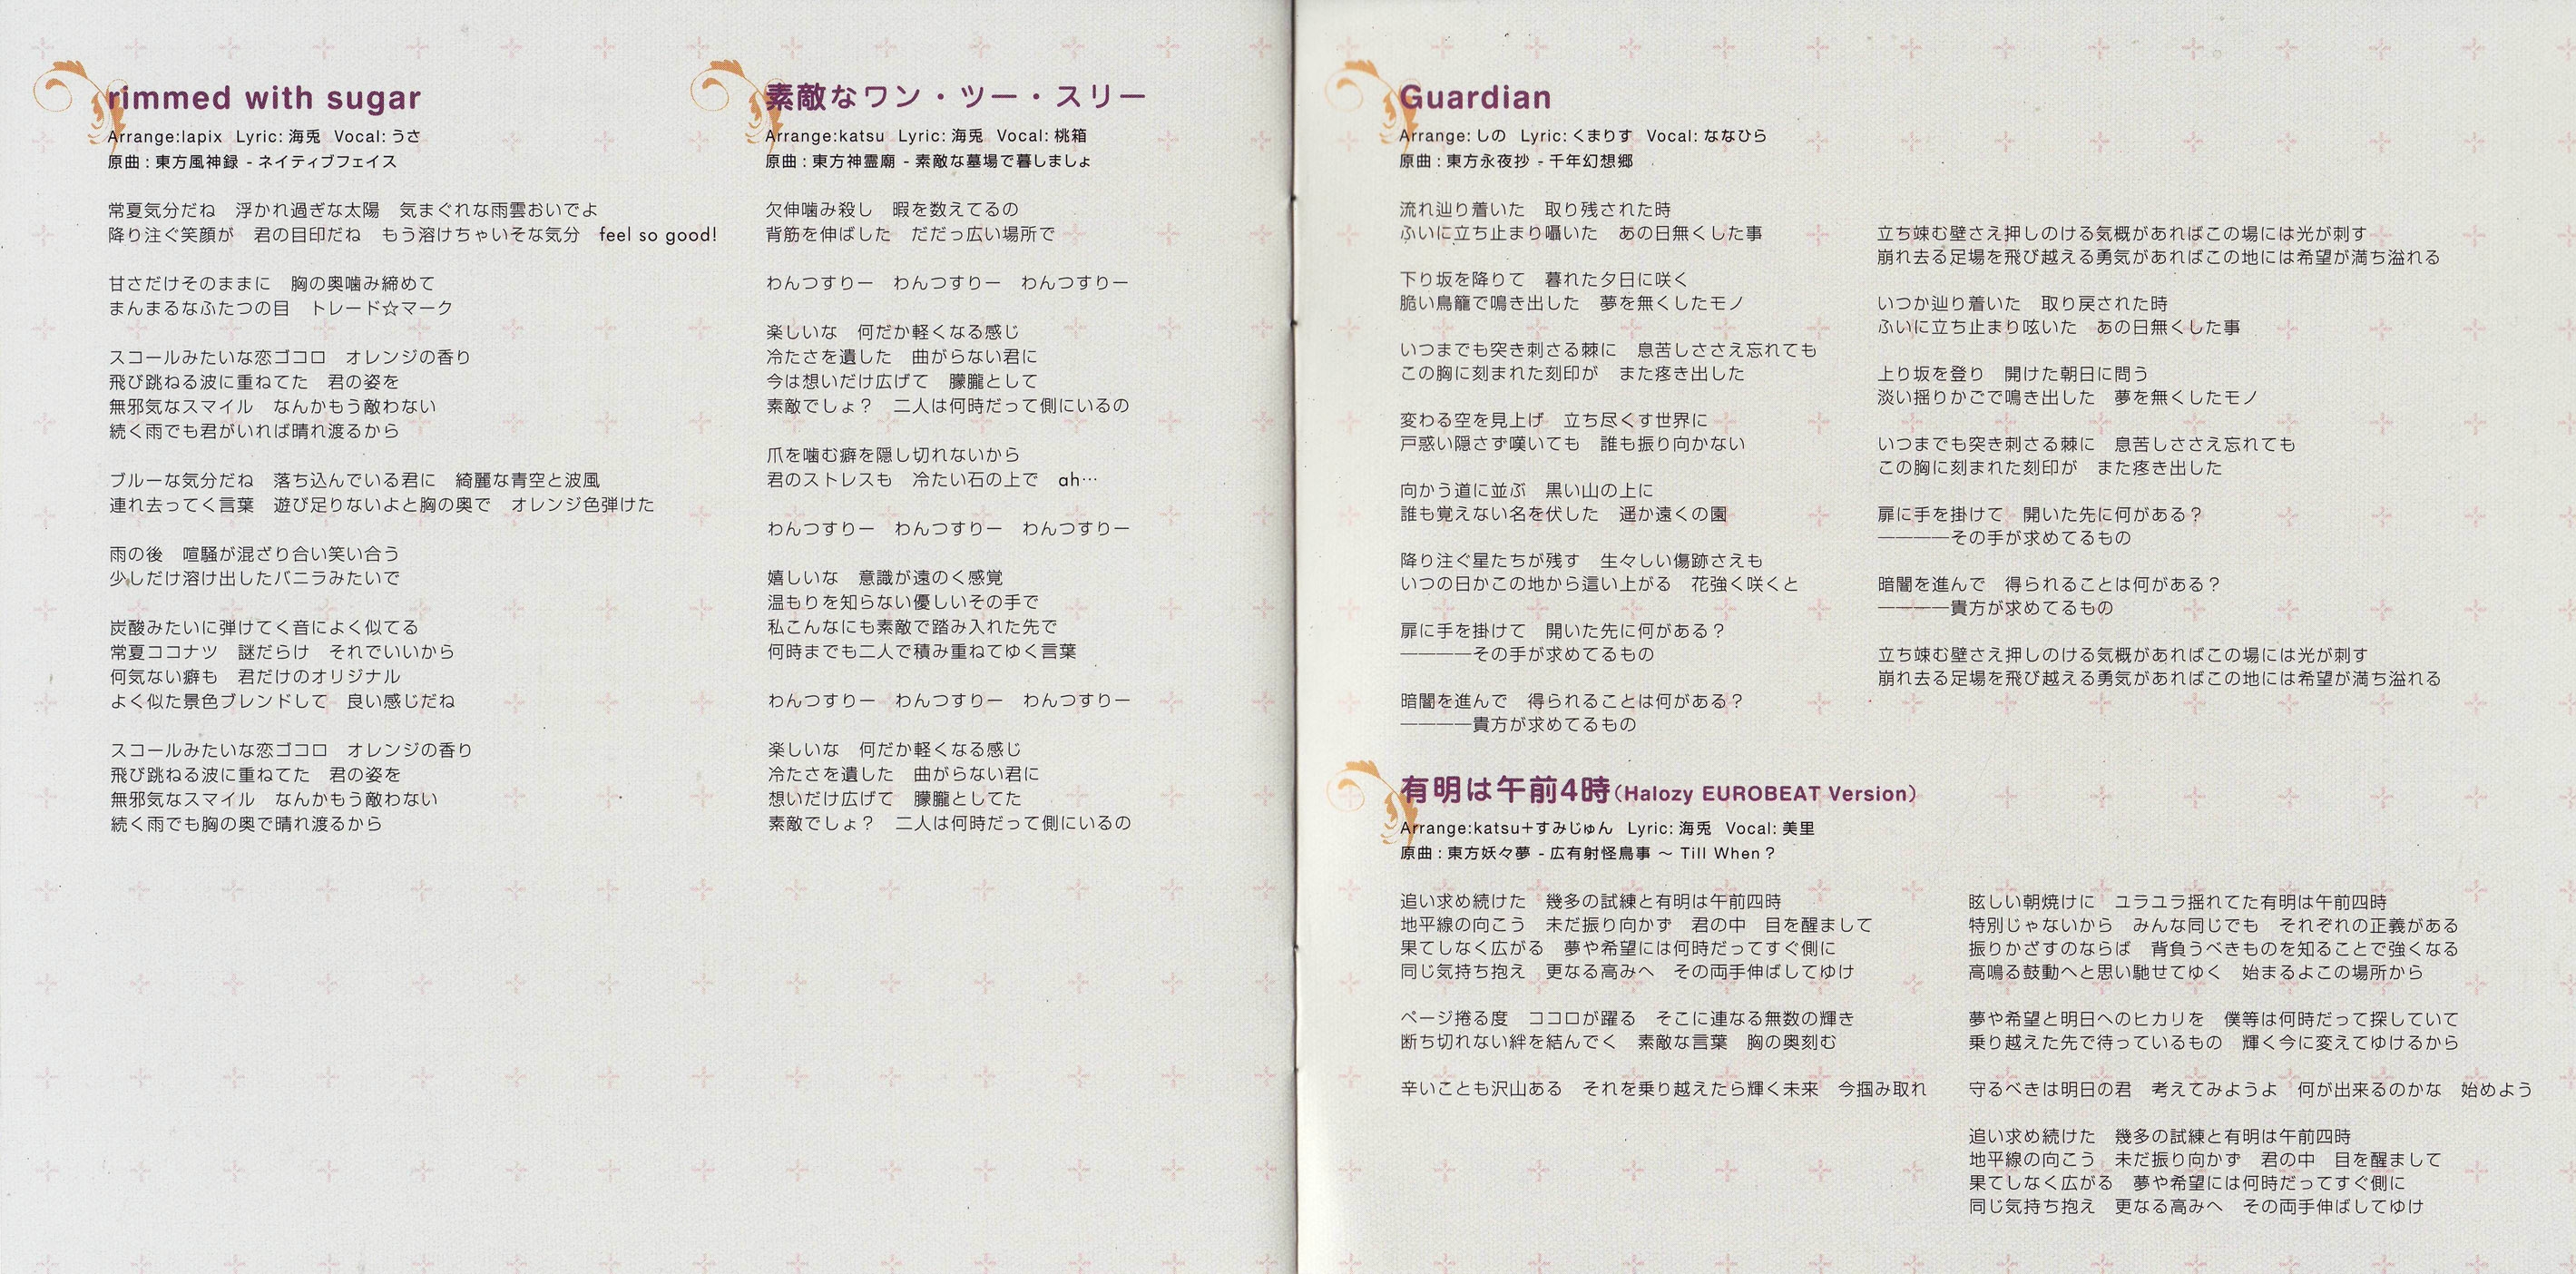 rimmed with sugar
Arrange:lapix Lyric: 海兎 Vocal: うさ
原曲 : 東方風神録 - ネイティブフェイス
常夏気分だね　浮かれ過ぎな太陽　気まぐれな雨雲おいでよ
降り注ぐ笑顔が　君の目印だね　もう溶けちゃいそな気分　feel so good!
甘さだけそのままに　胸の奥噛み締めて
まんまるなふたつの目　トレード☆マーク
スコールみたいな恋ゴコロ　オレンジの香り
飛び跳ねる波に重ねてた　君の姿を
無邪気なスマイル　なんかもう敵わない
続く雨でも君がいれば晴れ渡るから
ブルーな気分だね　落ち込んでいる君に　綺麗な青空と波風
連れ去ってく言葉　遊び足りないよと胸の奥で　オレンジ色弾けた
雨の後　喧騒が混ざり合い笑い合う
少しだけ溶け出したバニラみたいで
炭酸みたいに弾けてく音によく似てる
常夏ココナツ　謎だらけ　それでいいから
何気ない癖も　君だけのオリジナル
よく似た景色ブレンドして　良い感じだね
スコールみたいな恋ゴコロ　オレンジの香り
飛び跳ねる波に重ねてた　君の姿を
無邪気なスマイル　なんかもう敵わない
続く雨でも胸の奥で晴れ渡るから
素敵なワン・ツー・スリー
Arrange:katsu Lyric: 海兎 Vocal: 桃箱
原曲 : 東方神霊廟 - 素敵な墓場で暮しましょ
欠伸噛み殺し　暇を数えてるの
背筋を伸ばした　だだっ広い場所で
わんつすりー　わんつすりー　わんつすりー
楽しいな　何だか軽くなる感じ
冷たさを遺した　曲がらない君に
今は想いだけ広げて　朦朧として
素敵でしょ？　二人は何時だって側にいるの
爪を噛む癖を隠し切れないから
君のストレスも　冷たい石の上で　ah…
わんつすりー　わんつすりー　わんつすりー
嬉しいな　意識が遠のく感覚
温もりを知らない優しいその手で
私こんなにも素敵で踏み入れた先で
何時までも二人で積み重ねてゆく言葉
わんつすりー　わんつすりー　わんつすりー
楽しいな　何だか軽くなる感じ
冷たさを遺した　曲がらない君に
想いだけ広げて　朦朧としてた
素敵でしょ？　二人は何時だって側にいるの
Guardian
Arrange: しの Lyric: くまりす Vocal: ななひら
原曲 : 東方永夜抄 - 千年幻想郷
流れ辿り着いた　取り残された時
ふいに立ち止まり囁いた　あの日無くした事
下り坂を降りて　暮れた夕日に咲く
脆い鳥籠で鳴き出した　夢を無くしたモノ
いつまでも突き刺さる棘に　息苦しささえ忘れても
この胸に刻まれた刻印が　また疼き出した
変わる空を見上げ　立ち尽くす世界に
戸惑い隠さず嘆いても　誰も振り向かない
向かう道に並ぶ　黒い山の上に
誰も覚えない名を伏した　遥か遠くの園
降り注ぐ星たちが残す　生々しい傷跡さえも
いつの日かこの地から這い上がる　花強く咲くと
扉に手を掛けて　開いた先に何がある？
――――その手が求めてるもの
暗闇を進んで　得られることは何がある？
――――貴方が求めてるもの
立ち竦む壁さえ押しのける気概があればこの場には光が刺す
崩れ去る足場を飛び越える勇気があればこの地には希望が満ち溢れる
いつか辿り着いた　取り戻された時
ふいに立ち止まり呟いた　あの日無くした事
上り坂を登り　開けた朝日に問う
淡い揺りかごで鳴き出した　夢を無くしたモノ
いつまでも突き刺さる棘に　息苦しささえ忘れても
この胸に刻まれた刻印が　また疼き出した
扉に手を掛けて　開いた先に何がある？
――――その手が求めてるもの
暗闇を進んで　得られることは何がある？
――――貴方が求めてるもの
立ち竦む壁さえ押しのける気概があればこの場には光が刺す
崩れ去る足場を飛び越える勇気があればこの地には希望が満ち溢れる
有明は午前4時(Halozy EUROBEAT Version)
Arrange:katsu+すみじゅん Lyric: 海兎 Vocal: 美里
原曲 : 東方妖々夢 - 広有射怪鳥事 ～ Till When ?
追い求め続けた　幾多の試練と有明は午前四時
地平線の向こう　未だ振り向かず　君の中　目を醒まして
果てしなく広がる　夢や希望には何時だってすぐ側に
同じ気持ち抱え　更なる高みへ　その両手伸ばしてゆけ
ページ捲る度　ココロが躍る　そこに連なる無数の輝き
断ち切れない絆を結んでく　素敵な言葉　胸の奥刻む
辛いことも沢山ある　それを乗り越えたら輝く未来　今掴み取れ
眩しい朝焼けに　ユラユラ揺れてた有明は午前四時
特別じゃないから　みんな同じでも　それぞれの正義がある
振りかざすのならば　背負うべきものを知ることで強くなる
高鳴る鼓動へと思い馳せてゆく　始まるよこの場所から
夢や希望と明日へのヒカリを　僕等は何時だって探していて
乗り越えた先で待っているもの　輝く今に変えてゆけるから
守るべきは明日の君　考えてみようよ　何が出来るのかな　始めよう
追い求め続けた　幾多の試練と有明は午前四時
地平線の向こう　未だ振り向かず　君の中　目を醒まして
果てしなく広がる　夢や希望には何時だってすぐ側に
同じ気持ち抱え　更なる高みへ　その両手伸ばしてゆけ